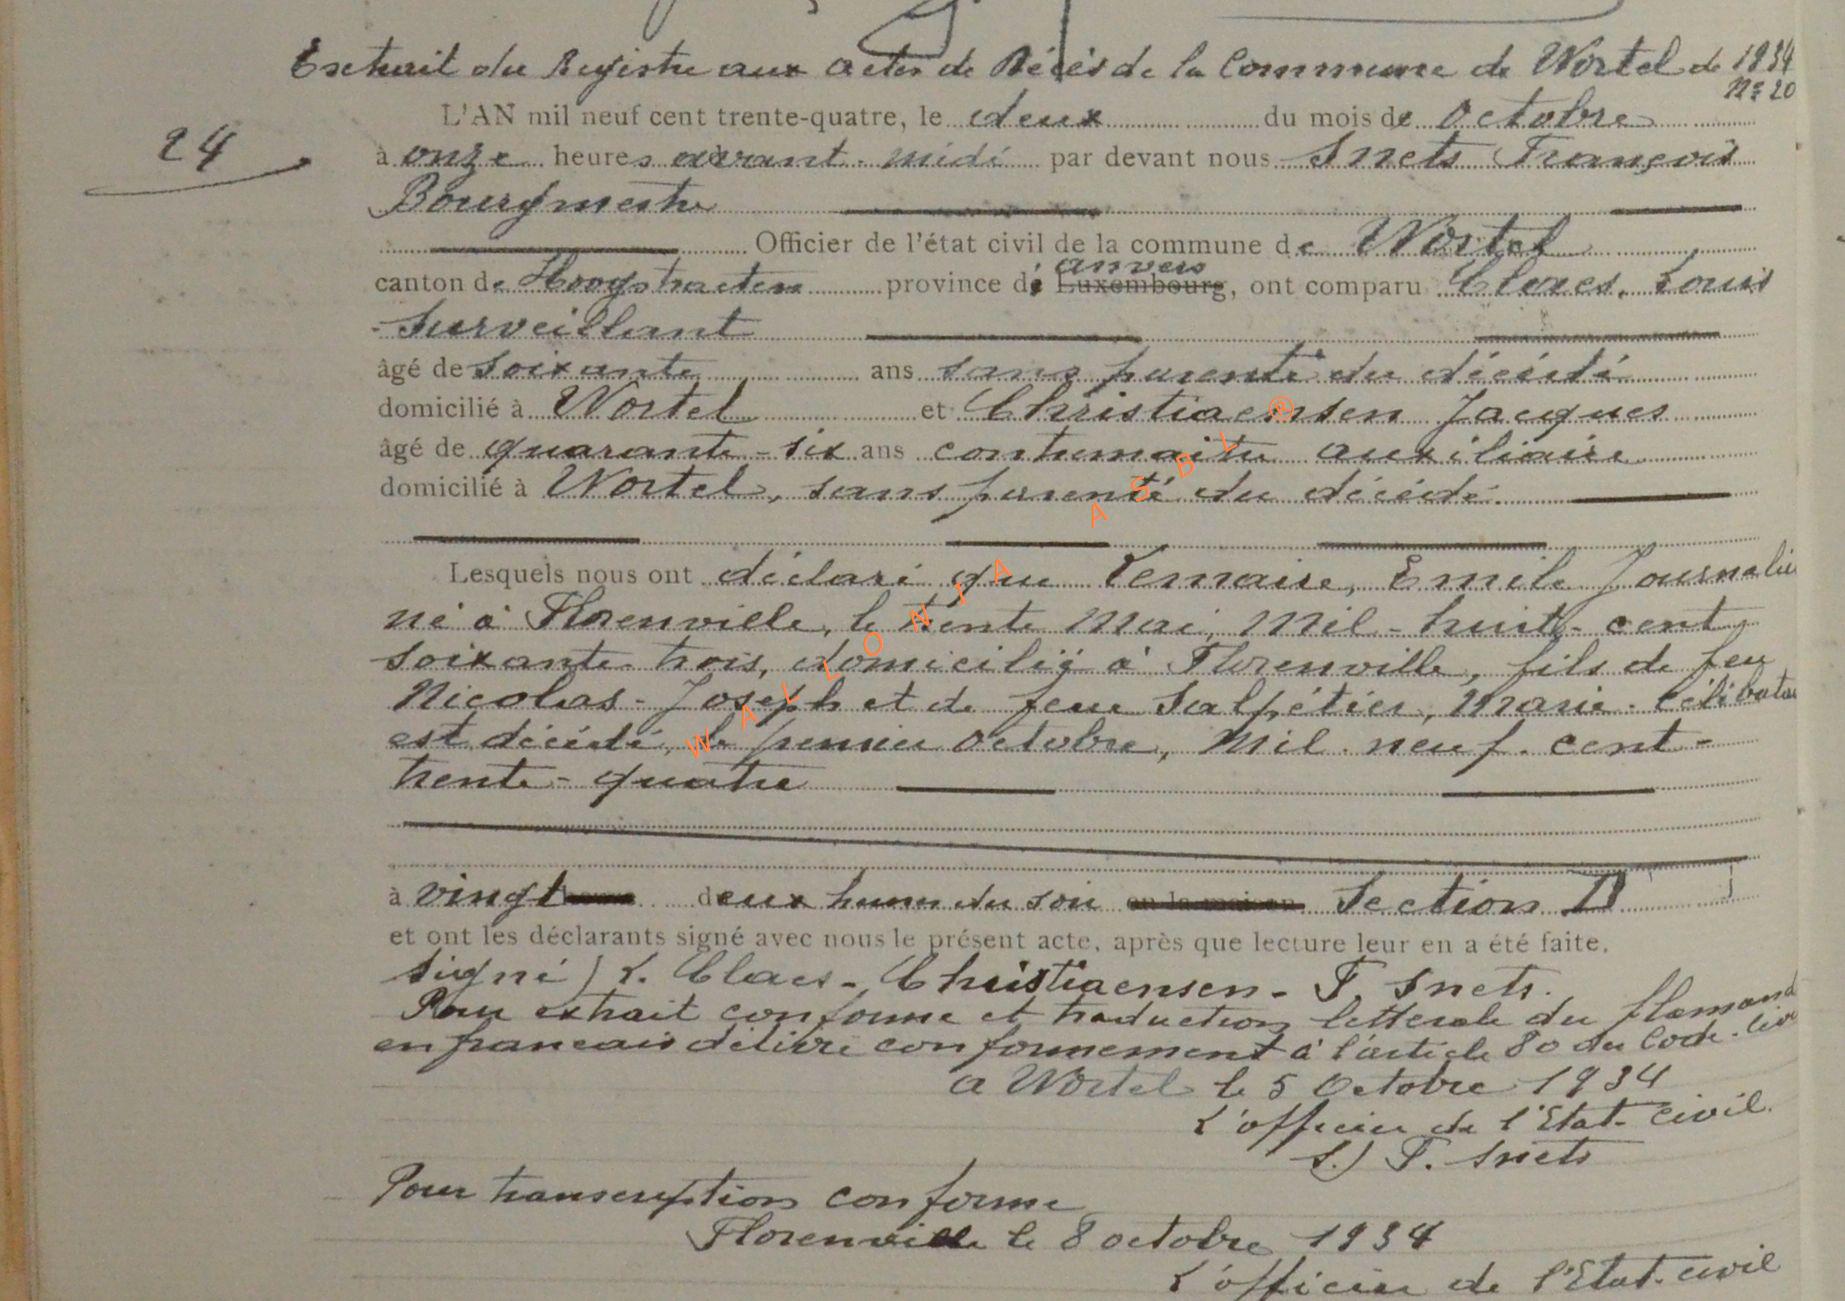 Extrait du Registre aux actes de Décès de la Commune de Wortel de 1934
N° 20
24
L'AN mil neuf cent trente-quatre, le deux du mois de Octobre
à onze heures avant-midi par devant nous Snets François
Bourgmestre
Officier de l'état civil de la commune de Wortel
canton de Hoogstraeten province de Luxembourg anvers, ont comparu Claes, Louis
Surveillant
âgé de soixante ans sans parenté du décédé
domicilié à Wortel et Christiaensen Jacques
âgé de quarante-six ans contremaitre auxiliaire
domicilié à Wortel, sans parenté du décédé.
Lesquels nous ont déclaré que Lemaire, Emile Journalier
né à Florenville, le trente Mai, Mil-huit-cent
soixante-trois, domicilié à Florenville, fils de feu
Nicolas-Joseph et de feue Salpétier, Marie. Célibatai
est décédé, le premier octobre, Mil-neuf-cent-
trente-quatre
à vingt deux heures du soir Section D
et ont les déclarants signé avec nous le présent acte, après que lecture leur en a été faite.
signé) L. Claes - Christiaensen - F. Snets.
Pour extrait conforme et traduction littérale du flamand
en francais délivré conformement à l'article 80 du Code-Civ
a Wortel le 5 Octobre 1934
L'officier de l'Etat-civil.
S.) F. Snets
Pour transcription conforme
Florenville le 8 octobre 1934
L'officier de l'Etat-civil
WALLONIA ASBL @